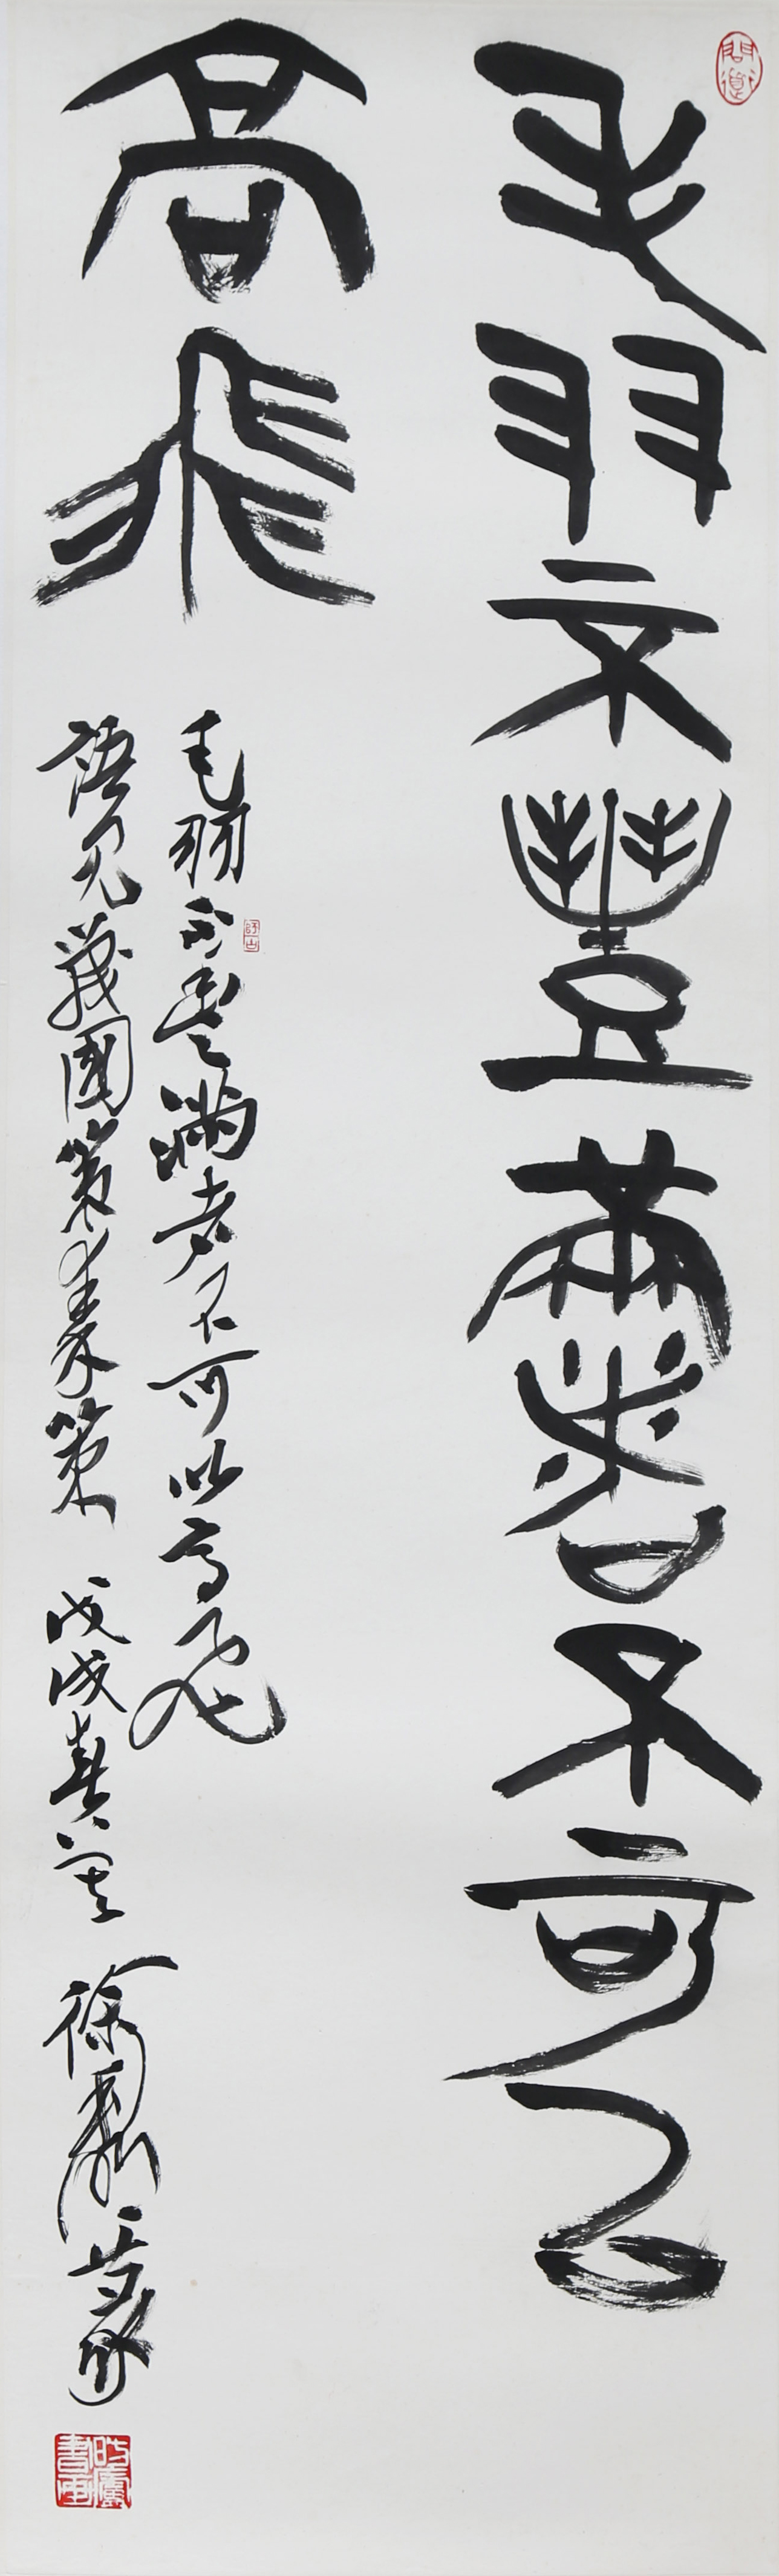 問道
毛羽不豐滿者不可以
高飛
毛羽不豐滿者不可以高飛
師古
語見戰國策秦策 戊戌 徐